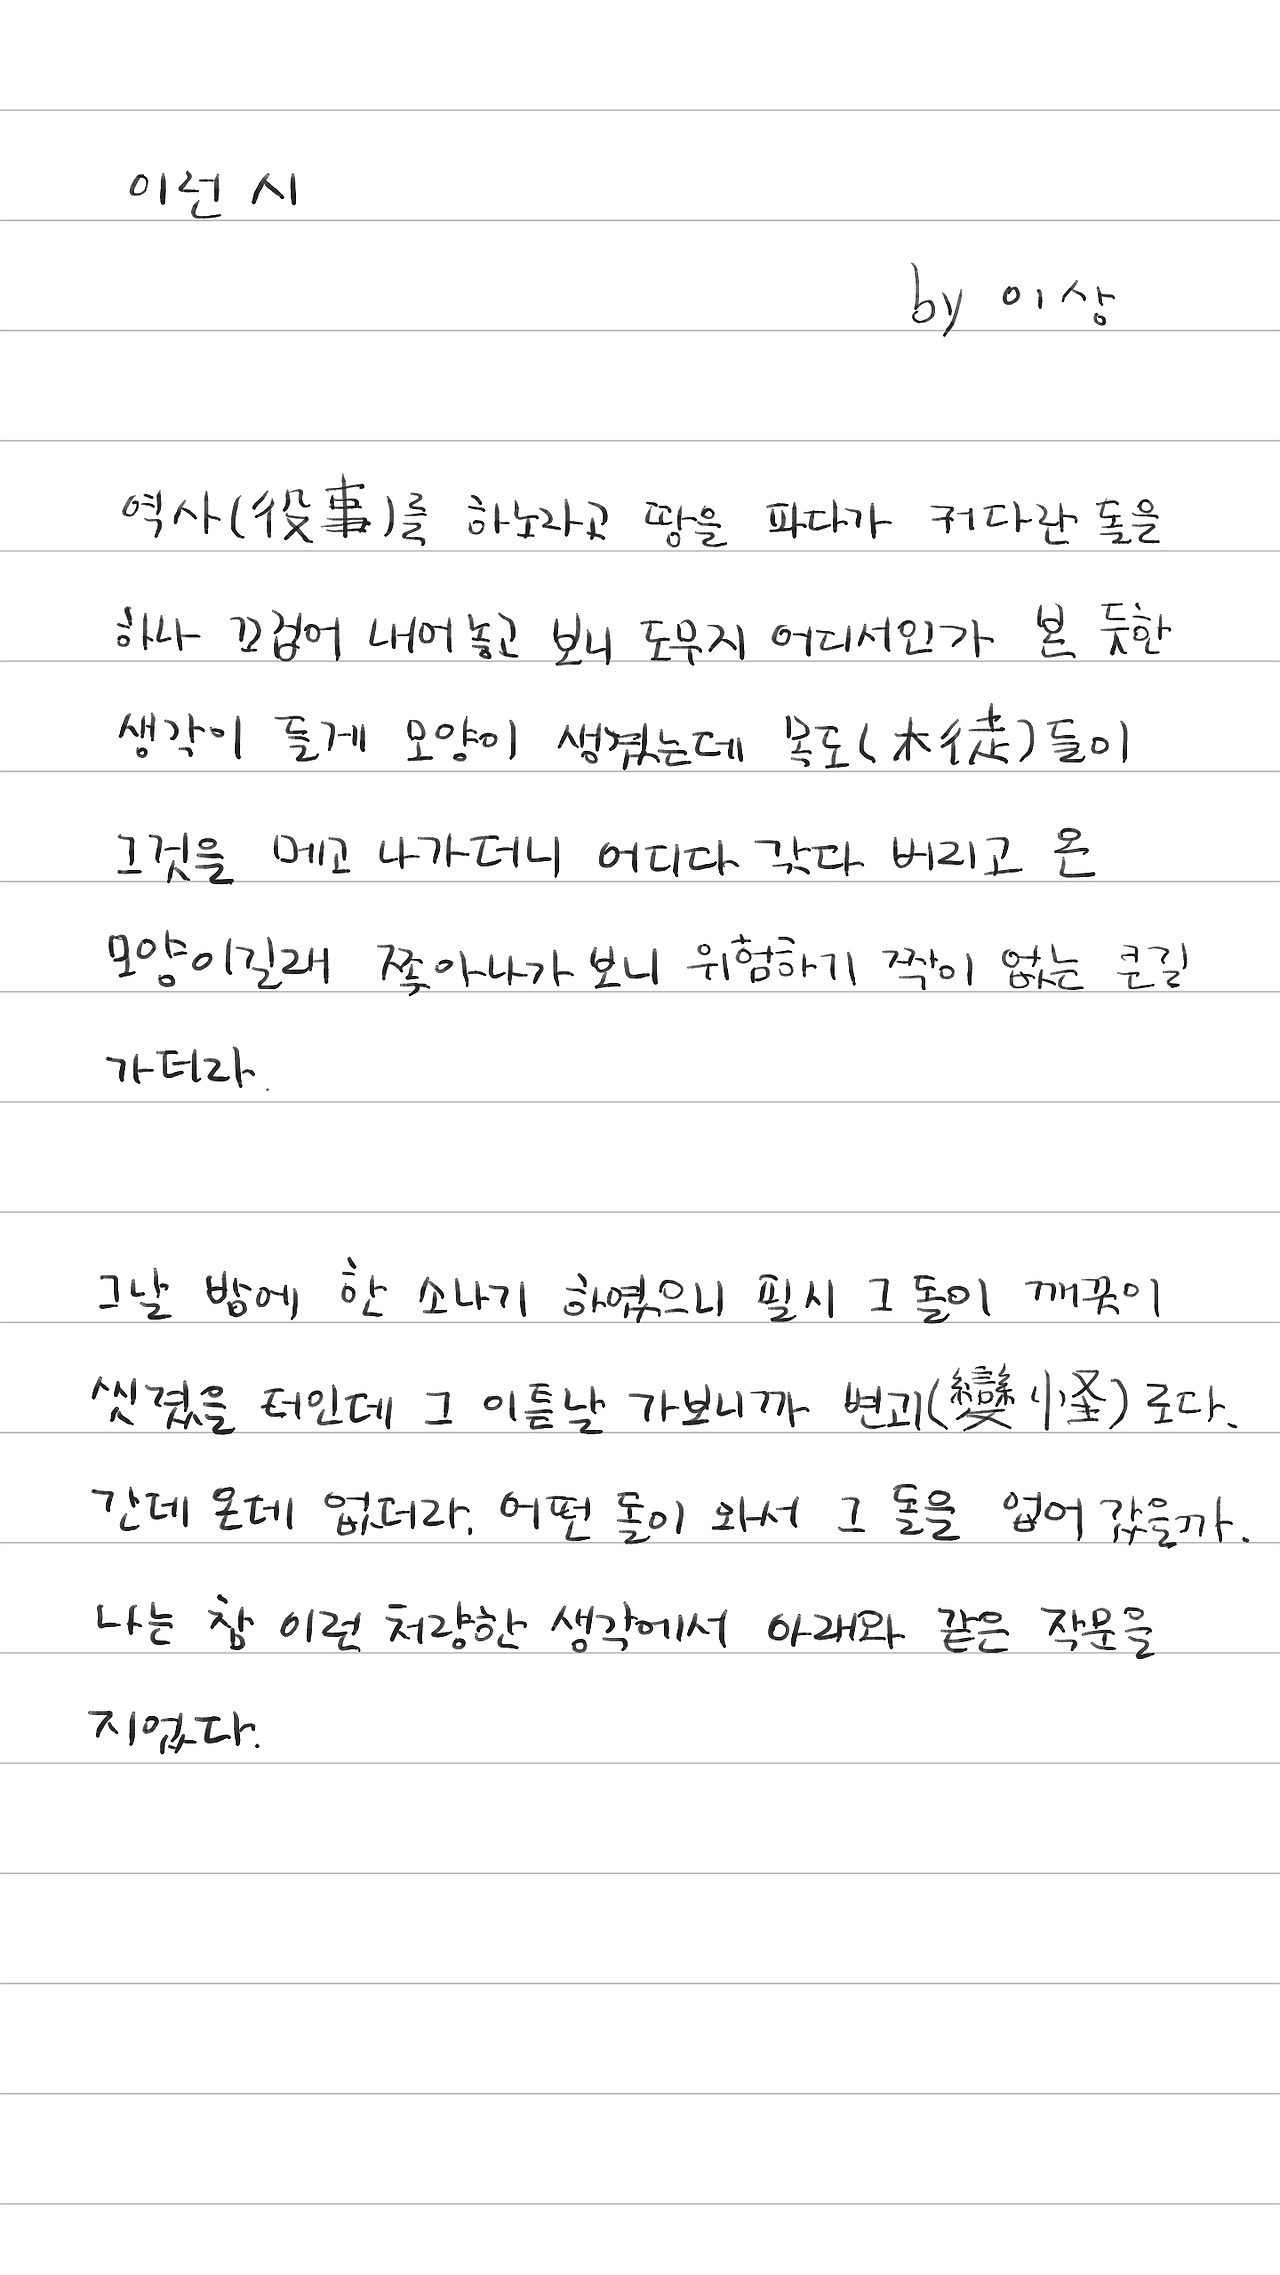 이런 시
by 이상
역사(役事)를 하노라고 땅을 파다가 커다란 돌을
하나 끄집어 내어놓고 보니 도무지 어디서인가 본 듯한
생각이 들게 모양이 생겼는데 목도(木徒)들이
그것을 메고 나가더니 어디다 갖다 버리고 온
모양이길래 쫓아나가 보니 위험하기 짝이 없는 큰길
가더라.
그날 밤에 한 소나기 하였으니 필시 그 돌이 깨끗이
씻겼을 터인데 그 이튿날 가보니까 변괴(變怪)로다.
간데 온데 없더라. 어떤 돌이 와서 그 돌을 업어 갔을까.
나는 참 이런 처량한 생각에서 아래와 같은 작문을
지었다.